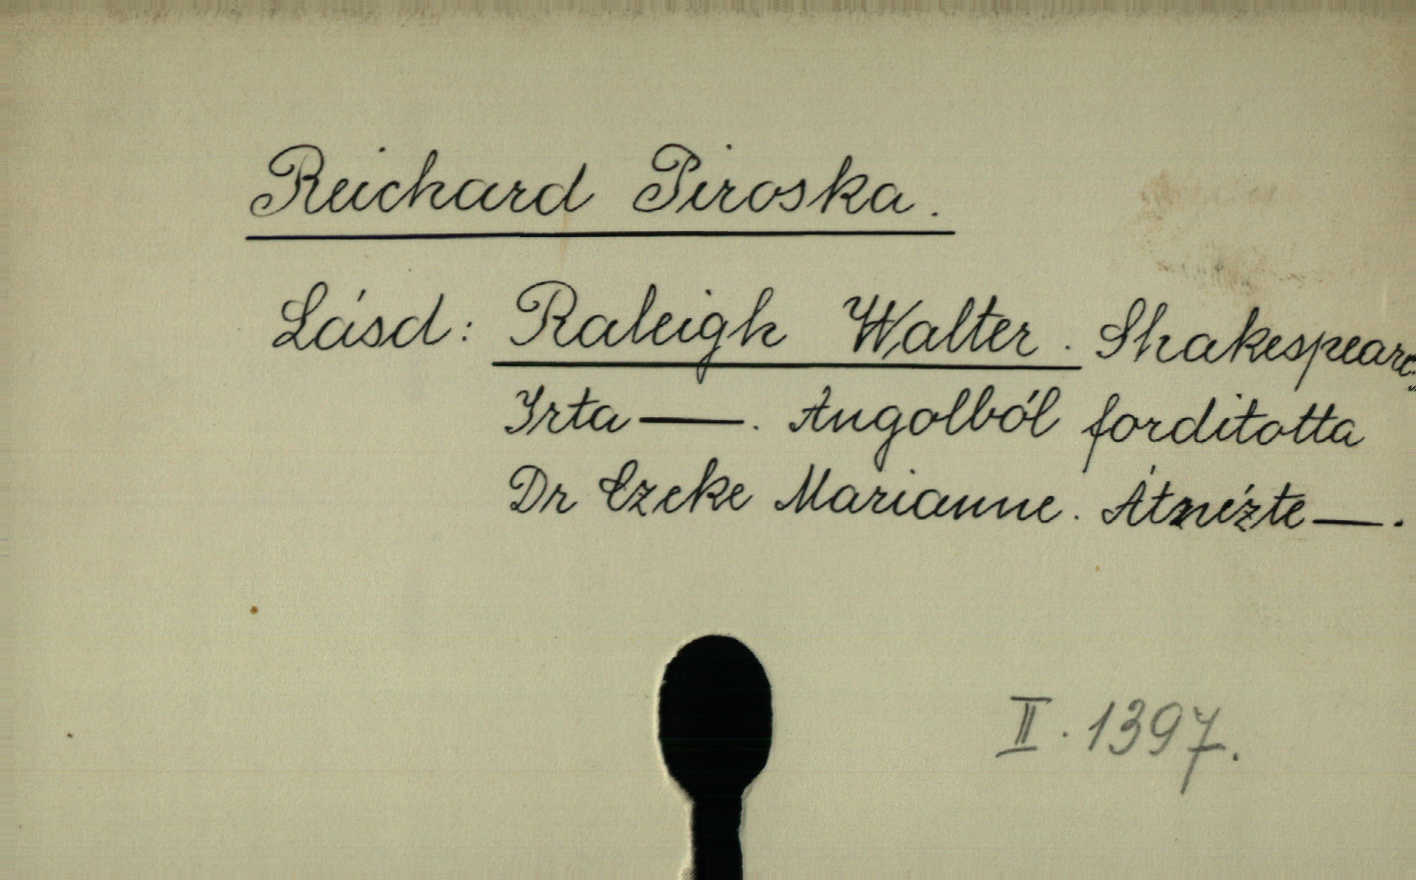 Reichard Piroska.
Lásd: Raleigh Walter. Shakespeare.
Irta —. Angolból fordította
Dr Czeke Marianne. Átnézte —.
II. 1397.